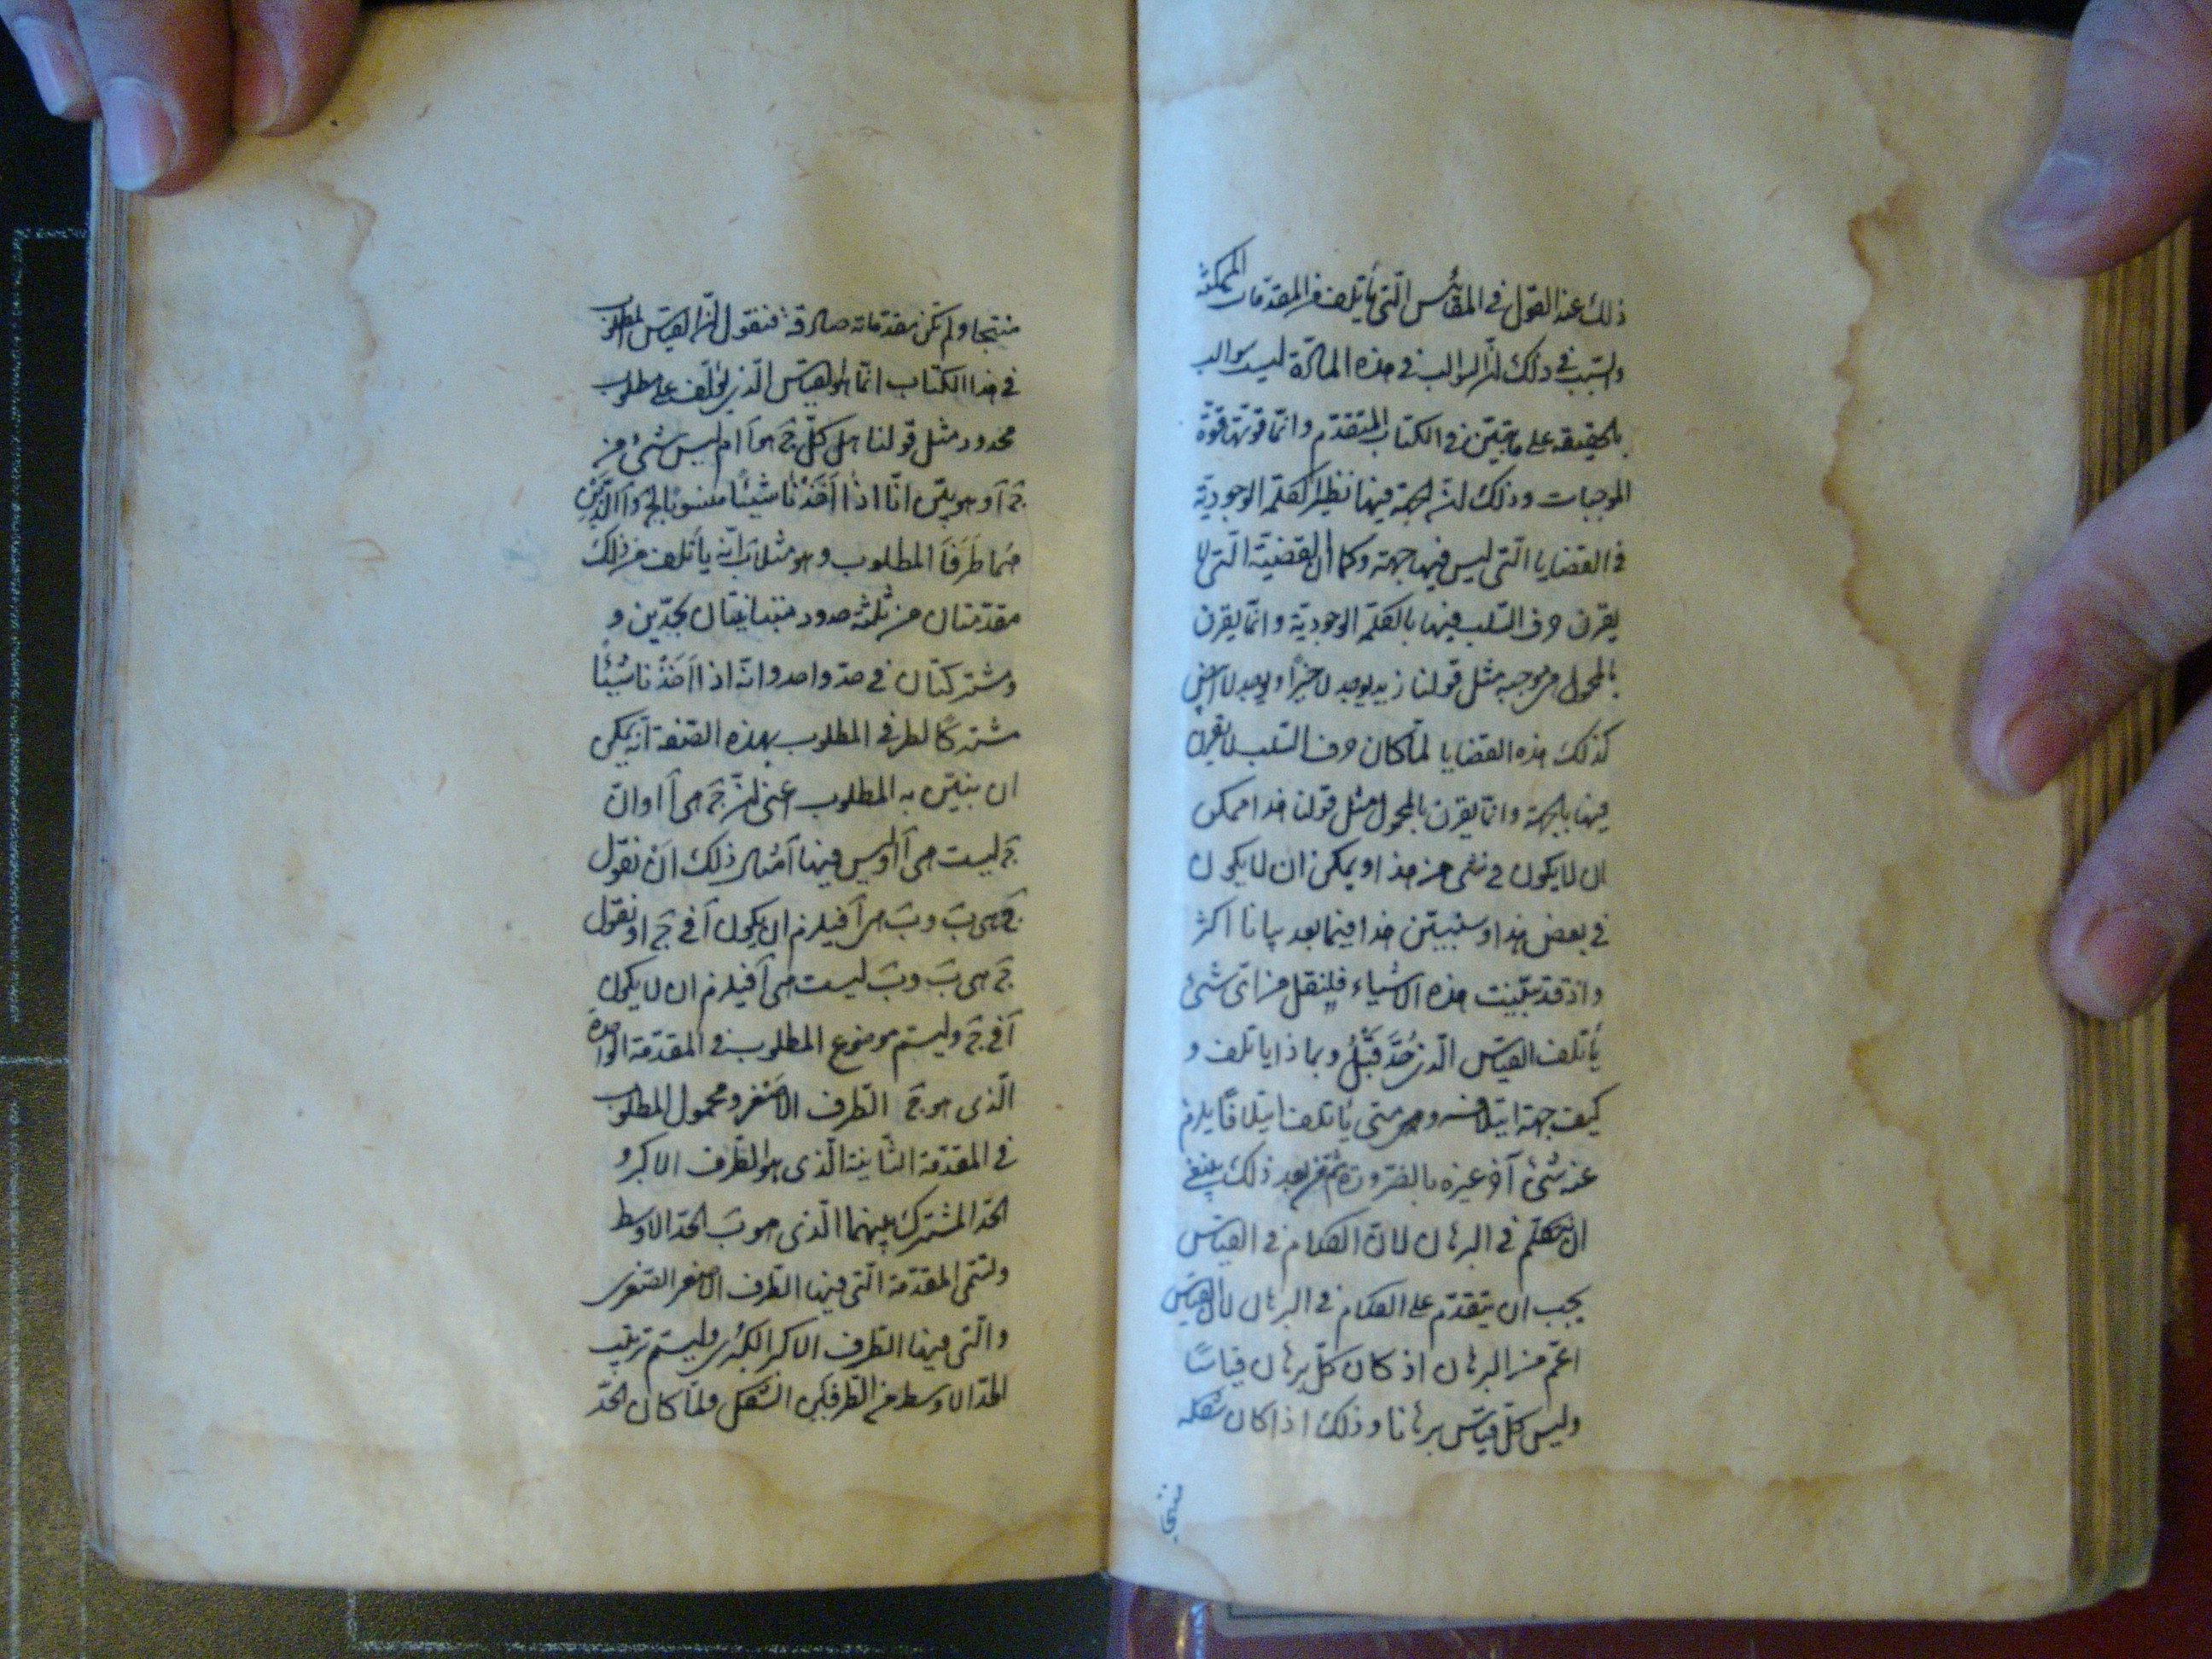 ذلك عند القول فى المقائيس الّتى تأتلف من المقدّمات الممكنة
والسّبب فى ذلك انّ السوالب فى هذه المادّة ليست سوالب
بالحقيقة على ما تبيّن فى الكتاب المتقدّم وانّما قوّتها قوّة
الموجبات وذلك انّ الجهة فيها نظير الكلمة الوجوديّة
فى القضايا الّتى ليس فيها جهة وكما انّ القضيّة الّتى لا
يقرن حرف السّلب فيها بالكلمة الوجوديّة وانّما يقرن
بالمحمول هى موجبة مثل قولنا زيد يوجد لا خيّرًا ويوجد لا ابيض
كذلك هذه القضايا لمّا كان حرف السّلب لا يقرن
فيها بالجهة وانّما يقرن بالمحمول مثل قولنا هذا ممكن
ان لا يكون فى شىء من هذا او يمكن ان لا يكون
فى بعض هذا وسنبيّن هذا فيما بعد بيانا اكثر
واذ قد تبيّنت هذه الاشياء فلنقل من اىّ شىء
يأتلف القياس الّذى حُدَّ قَبْلُ وبماذا ياتلف و
كيف جهة ايتلافه ومتى يأتلف ايتلافًا يلزم
عنه شىء آخر غيره بالضّرورة ثمّ من بعد ذلك ينبغى
ان نتكلّم فى البرهان لانّ الكلام فى القياس
يجب ان يتقدّم على الكلام فى البرهان لانّ القياس
اعمّ من البرهان اذ كان كلّ برهان قياسًا
وليس كلّ قياس برهانا وذلك اذا كان شكله
منتجا
منتجا ولم تكن مقدّماته صادقة فنقول انّ القياس المطلوب
فى هذا الكتاب انّما هو القياس الّذى يؤلّف على مطلوب
محدود مثل قولنا هل كلّ جَ هو آ ام ليس شىء من
جَ آ وهو بيّن انّا اذا اَخَذْنَا شيئًا منسوبا لجَ وآ الّذَيْن
هُما طَرَفَا المطلوب وهو مثلا بَ انّه يأتلف من ذلك
مقدّمتان من ثلثة حدود متباينتان بحدّين و
ومشتركتان فى حدّ واحد وانّه اذا اَخَذْنا شيئًا
مشتركًا لطرفى المطلوب بهذه الصّفة انّه يمكن
ان نبيّن به المطلوب اعنى انّ جَ هى آ او انّ
جَ ليست هى آ او ليس فيها آ مثال ذلك انْ نقول
جَ هى بَ وبَ هى آ فيلزم ان يكون آ فى جَ او نقول
جَ هى بَ وبَ ليست هى آ فيلزم ان لا يكون
آ فى جَ وليسمّ موضوع المطلوب فى المقدّمة الواحدة
الّذى هو جَ الطّرف الاصْغر ومحمول المطلوب
فى المقدّمة الثّانية الّذى هو آ الطّرف الاكبر و
الحدّ المشترك بينهما الّذى هو بَ الحدّ الاوسط
ولتسمّى المقدّمة الّتى فيها الطّرف الاصغر الصّغرى
والّتى فيها الطّرف الاكبر الكبْرى وليسمّ ترتيب
الحدّ الاوسط من الطّرفين الشّكل ولمّا كان الحدّ